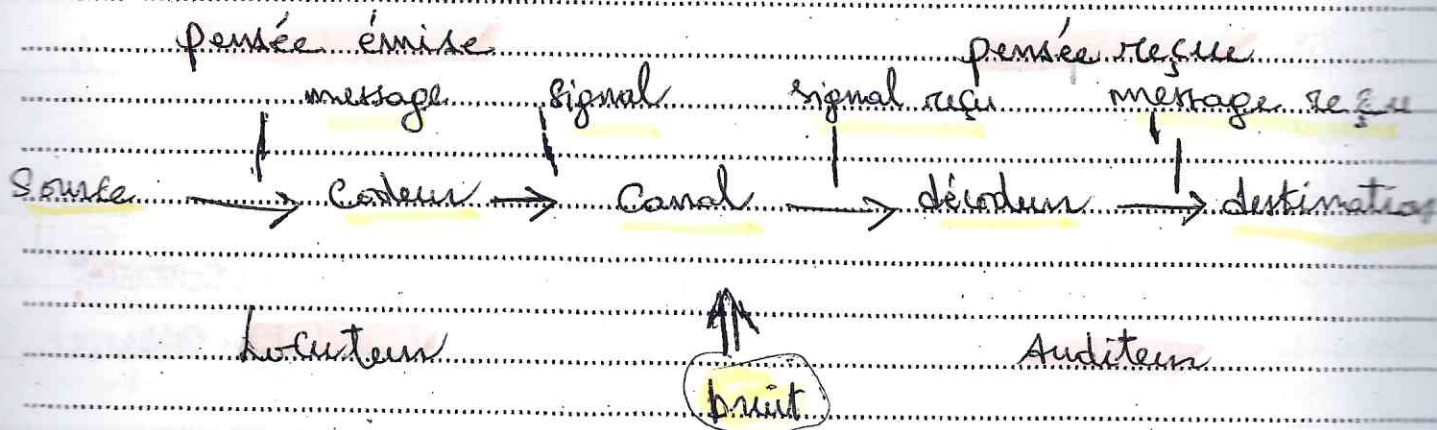 pensée émise pensée reçue
message signal signal reçu message reçu
Source → Codeur → Canal → décodeur → destination
Locuteur Auditeur
bruit